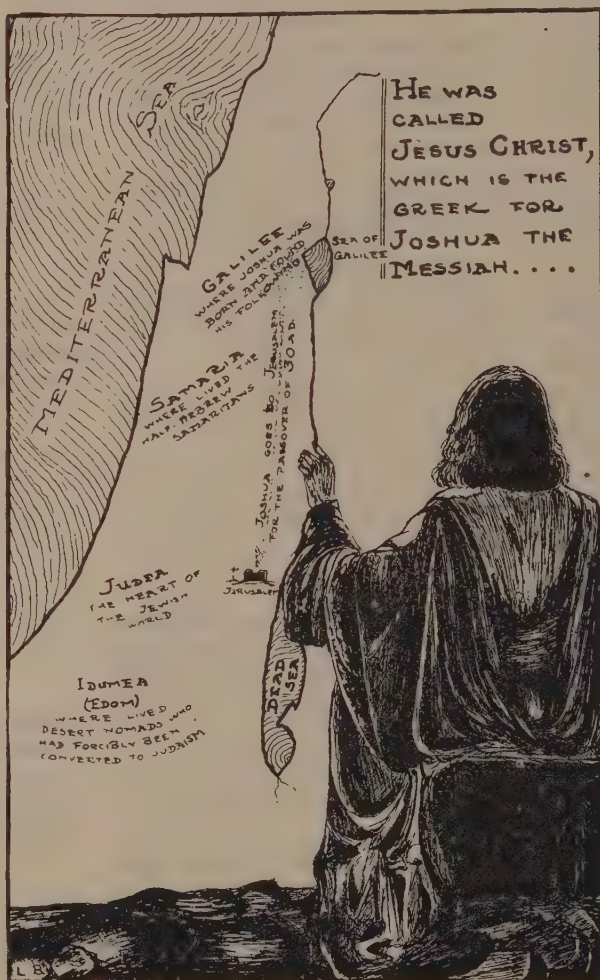 HE WAS
CALLED
JESUS CHRIST,
WHICH IS THE
GREEK FOR
JOSHUA THE
MESSIAH....
SEA
MEDITERRANEAN
GALILEE
WHERE JOSHUA WAS
BORN AND FOUND
HIS FOLLOWING
SEA OF
GALILEE
SAMARIA
WHERE LIVED THE
HALF-HEBREW
SAMARITANS
JOSHUA GOES TO JERUSALEM
FOR THE PASSOVER OF 30 A.D.
JERUSALEM
JUDEA
THE HEART OF
THE JEWISH
WORLD
DEAD
SEA
IDUMEA
(EDOM)
WHERE LIVED
DESERT NOMADS WHO
HAD FORCIBLY BEEN
CONVERTED TO JUDAISM
L B